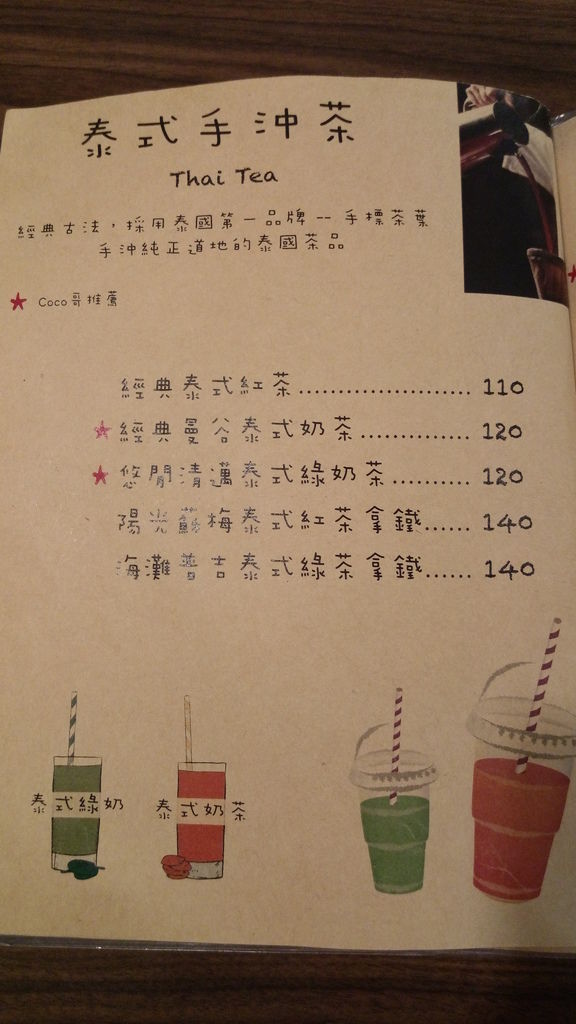 泰式手沖茶
Thai Tea
經典古法，採用泰國第一品牌 -- 手標茶葉
手沖純正道地的泰國茶品
★ Coco哥推薦
經典泰式紅茶...................... 110
★ 經典曼谷泰式奶茶.............. 120
★ 悠閒清邁泰式綠奶茶.......... 120
陽光蘇梅泰式紅茶拿鐵...... 140
海灘普吉泰式綠茶拿鐵...... 140
泰式綠奶
泰式奶茶